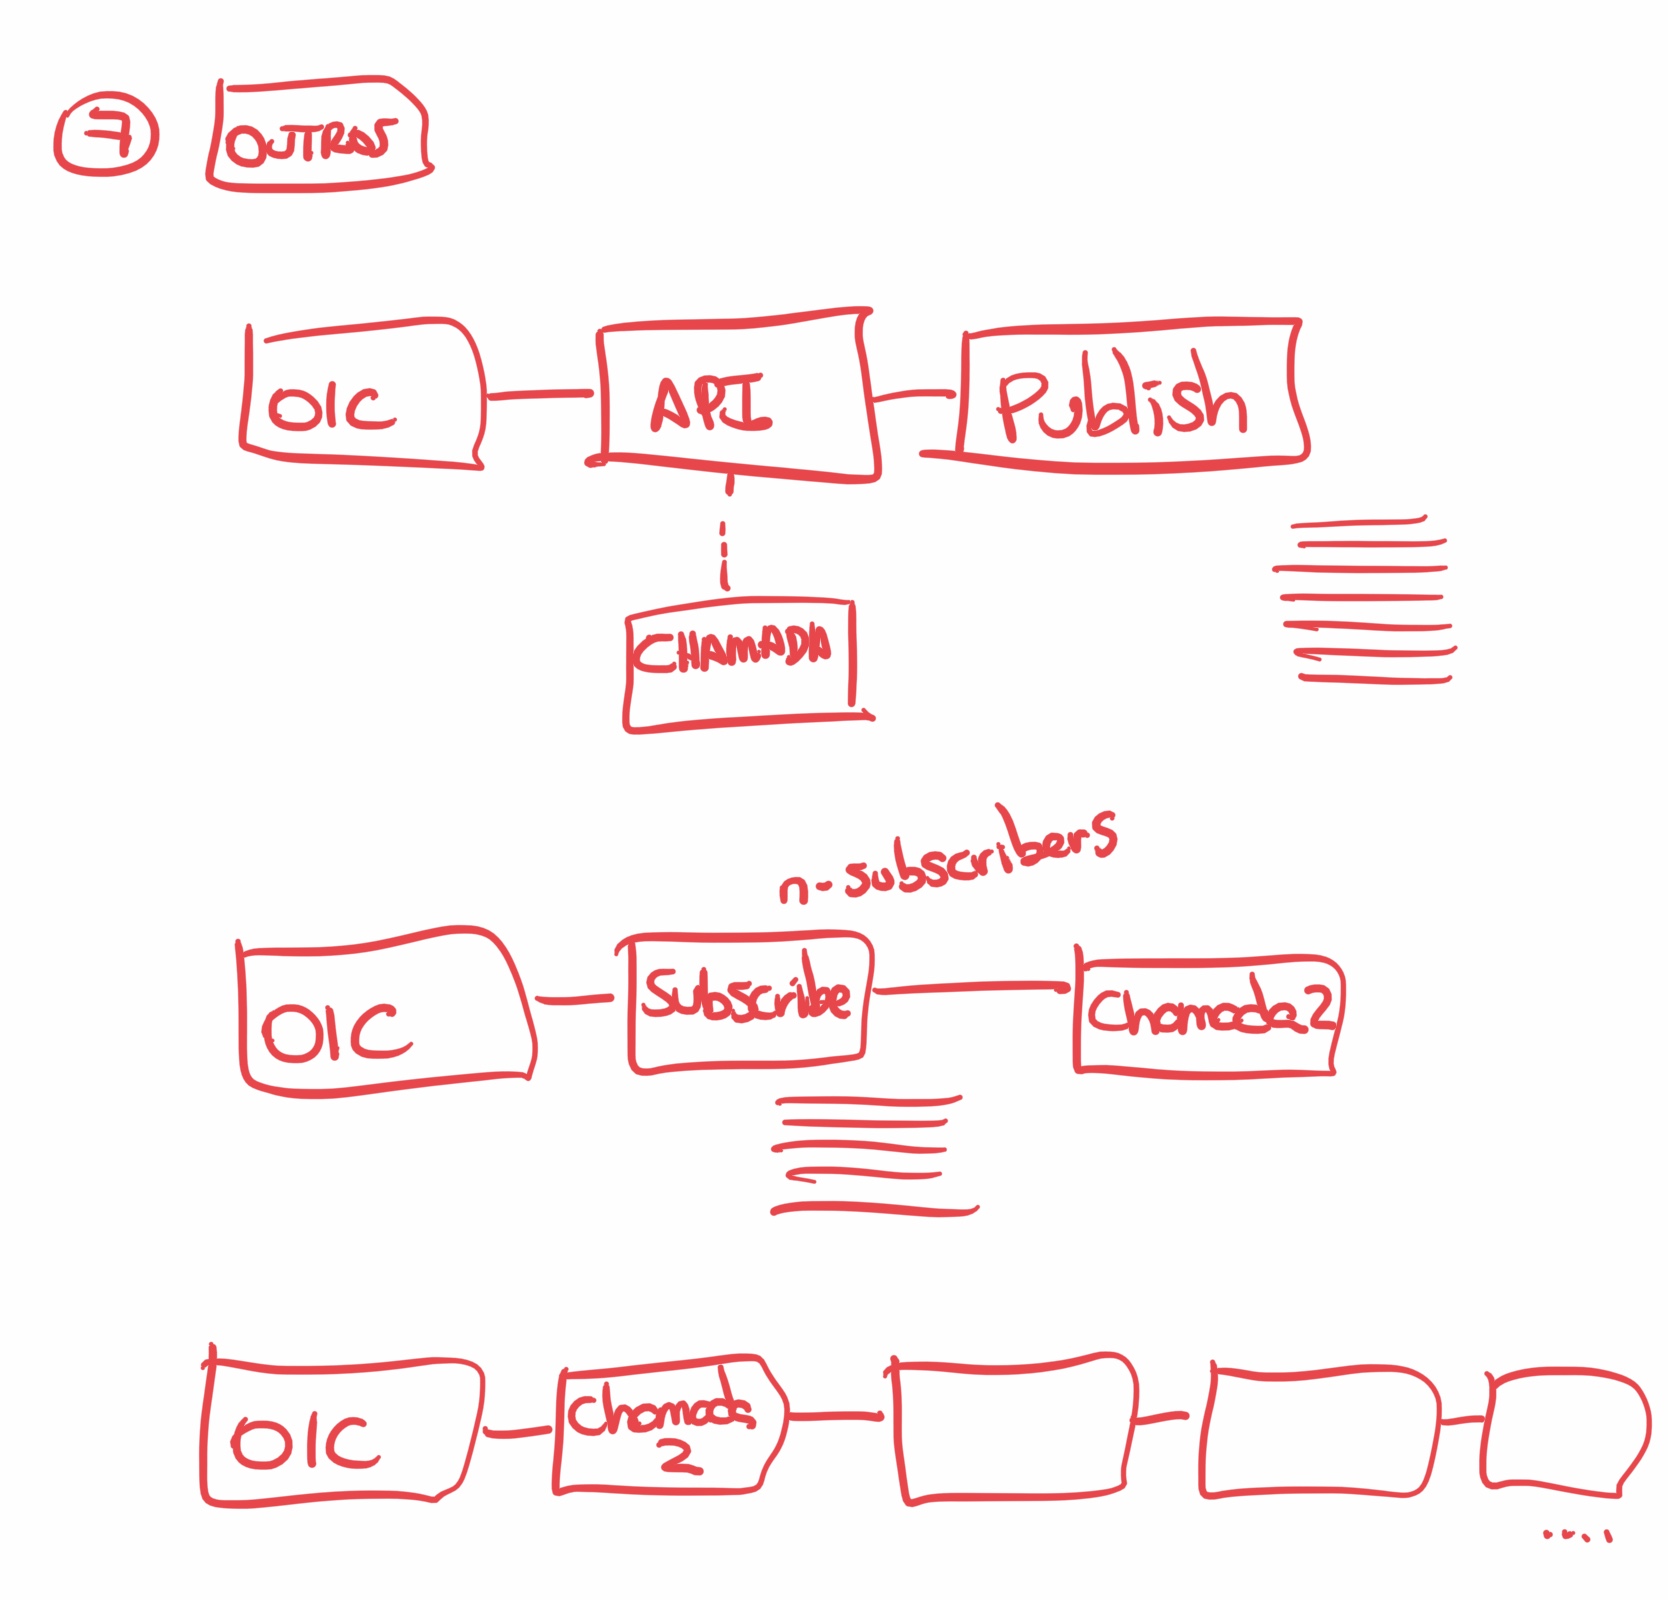 7
OUTROS
OIC
API
Publish
CHAMADA
n-subscribers
OIC
Subscribe
Chamada 2
OIC
Chamada
2
....